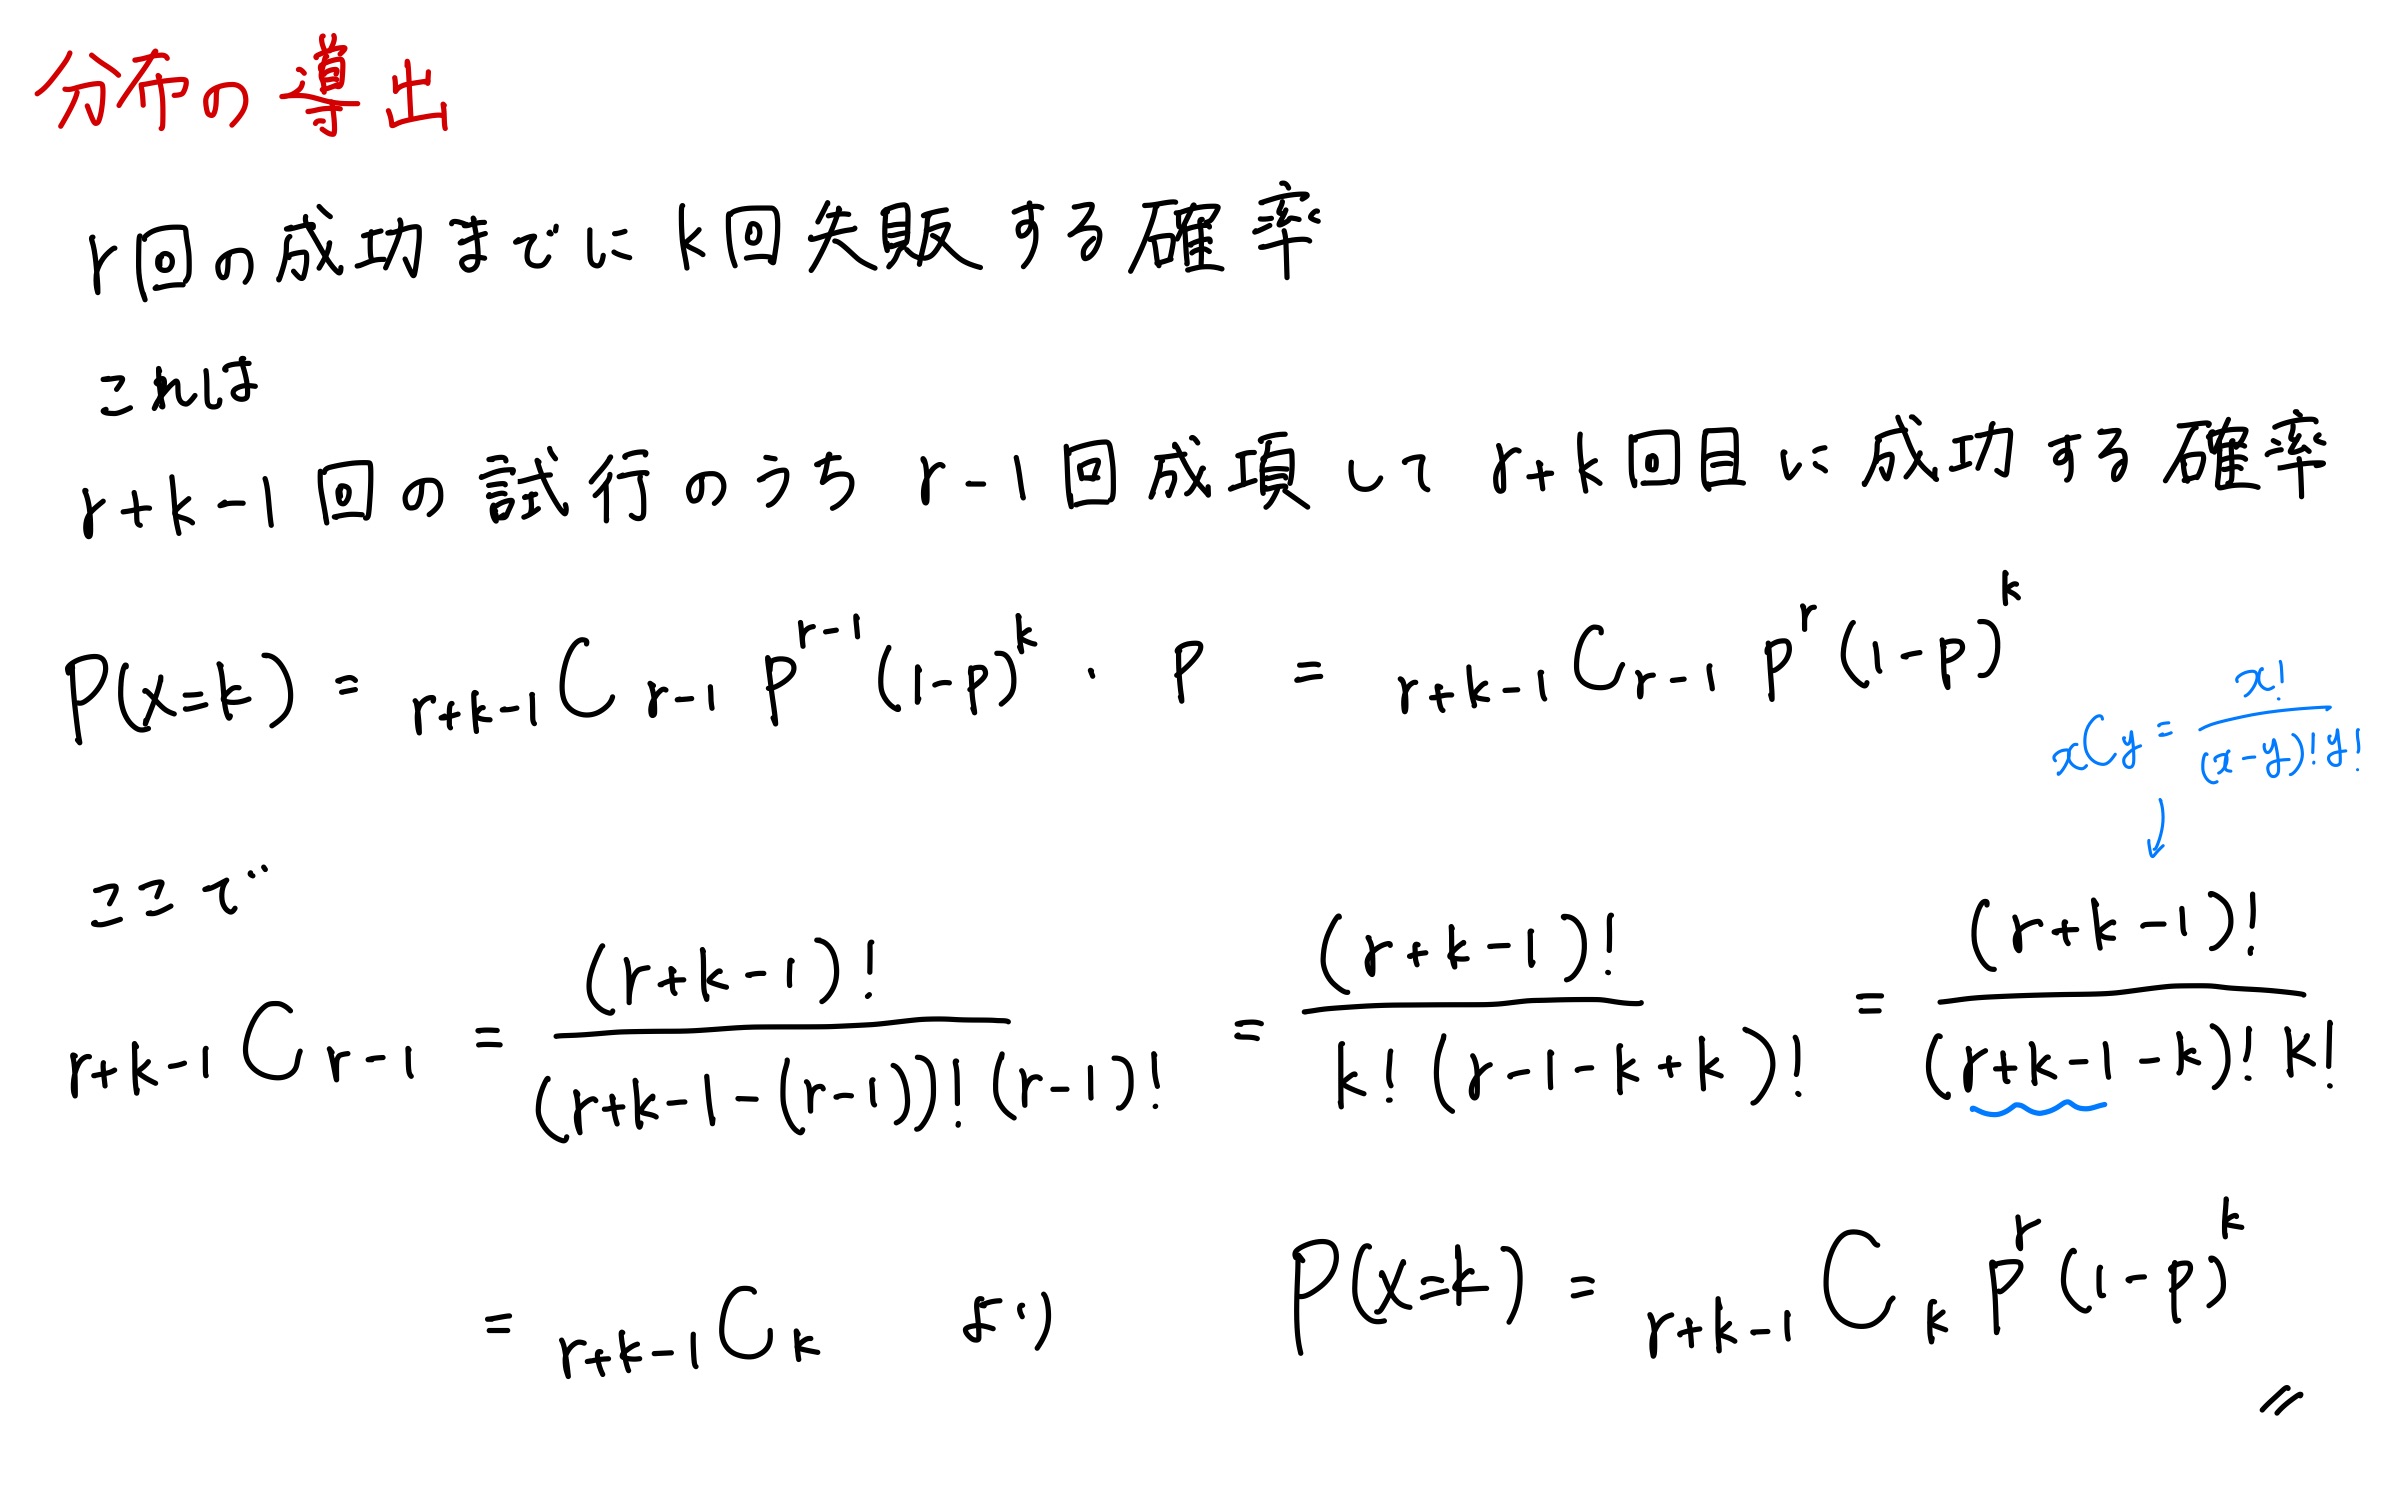 分布の導出
r回の成功までにk回失敗する確率
これは
r+k-1回の試行のうち r-1回成項して r+k回目に成功する確率
P(x=k) = r+k-1 C r-1 p^{r-1} (1-p)^k · p = r+k-1 C r-1 p^r (1-p)^k
xCy = x! / (x-y)! y!
↓
ここで
r+k-1 C r-1 = (r+k-1)! / (r+k-1-(r-1))! (r-1)! = (r+k-1)! / k! (r-1-k+k)! = (r+k-1)! / (r+k-1-k)! k!
= r+k-1 C k より P(x=k) = r+k-1 C k p^r (1-p)^k
//